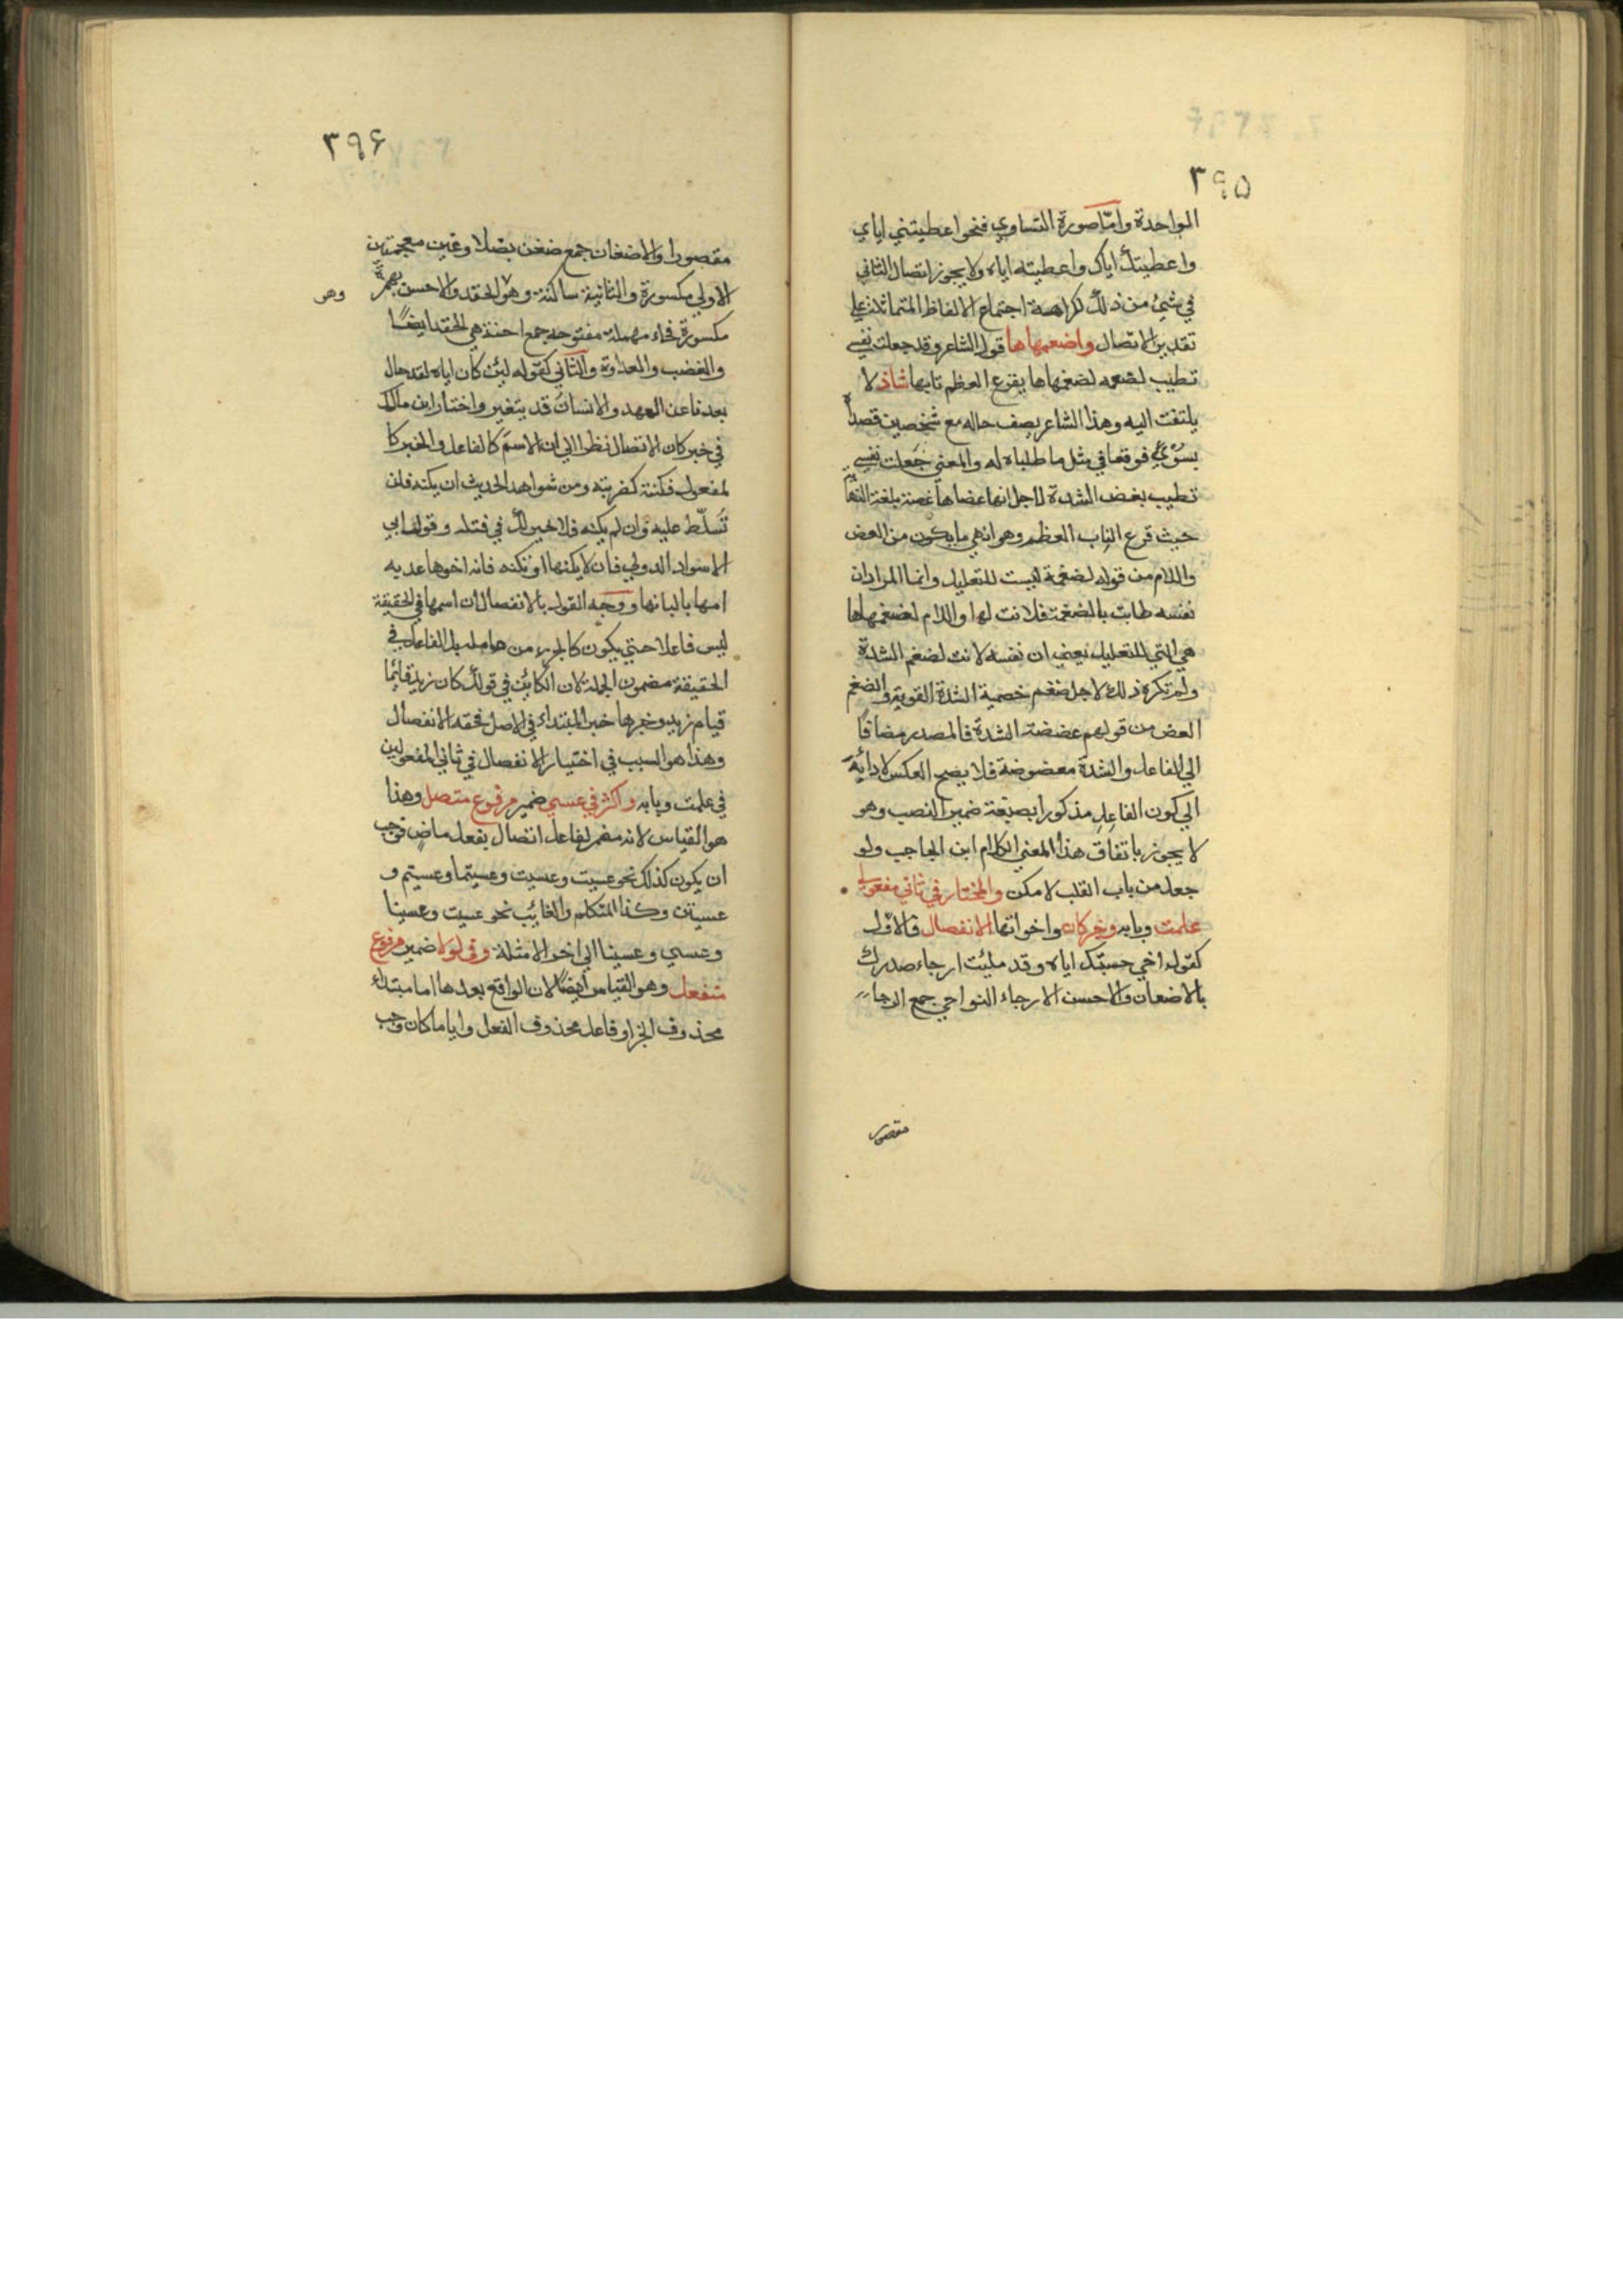 ٣٩۵
الواحدة وامّا صورة التساوي فنحو اعطيتني اياي
واعطيتك اياك واعطيته اياه ولا يجوز اتصال الثاني
في شيء من ذلك لكراهمة اجتماع الالفاظ المتماثلات علي
تقدير الاتصال واضعمهاها قول الشاعر وقد جعلت نفسي
تطيب لضغمه لضغمهاها يقرع العظم نابها شاذ لا
يلتفت اليه وهذا الشاعر يصف حاله مع شخصين قصداه
بسوء فوقعا في مثل ما طلباه له والمعني جعلت نفسي
تطيب بغض الشدة لاجل انهما عضاها غصنة بلغة
حيث قرع الناب العظم وهو انهي ما يكون من العض
واللام من قوله لضغمة ليست للتعليل وانما المراد ان
نفسه طابت بالضغمة فلانت لها واللام لضغمهاها
هي التي للتعليل يعني ان نفسه لانت لضغم الشدة
ولم تكره ذلك لاجل ضغم خصمية الشدة القوية والضغم
العض من قولهم عضضة الشدة فالمصدر مضافا
الي الفاعل والشدة معضوضة فلا يصح العكس لادائه
الي كون الفاعل مذكورا بصيغة ضمير النصب وهو
لا يجوز باتفاق هذا المعني الكلام ابن الحاجب ولو
جعل من باب القلب لامكن والمختار في ثاني مفعولي
علمت وبابه وخبر كان واخواتها الانفصال فالاول
كقوله اخي حسبتك اياه وقد ملئت ارجاء صدرك
بالاضعان والاحسن الارجاء النواحي جمع الرجا
مقصور
٣٩۶
مقصورا والاضغان جمع ضغن بضلا وغين معجمتين
الاولي مكسورة والثانية ساكنة وهو الحقد والاحسن بهمزة
وهو
مكسورة فحاء مهملة مفتوحه جمع احنة هي الحقد ايضًا
والغضب والعداوة والثاني كقوله لئن كان اياه لقد حال
بعدنا عن العهد والانسان قد يتغير واختار ابن مالك
في خبر كان الاتصال نظرا الي ان الاسم كالفاعل والخبر كا
لمفعول فكنته كضربته ومن شواهد الحديث ان يكنه فلن
تُسلّط عليه وان لم يكنه فلا خير لك في قتله وقول ابي
الاسواد الدولي فان لا يكنها او تكنه فانه اخوها غديه
امها بالبانها ووجه القول بالانفصال ان اسمها في الحقيقة
ليس فاعلا حتي يكون كالجزء من عامله بل الفاعل في
الحقيقة مضمون الجملة لان الكائن في قولك كان زيد قائما
قيام زيد وخبرها خبر المبتداء في الاصل فحقه الانفصال
وهذا هو السبب في اختيار الانفصال في ثاني المفعولين
في علمت وبابه واكثر في عسي ضمير مرفوع متصل وهذا
هو القياس لانه مضمر لفاعل اتصال بفعل ماض فوجب
ان يكون كذلك نحو عسيت وعسيت وعسيتما وعسيتم و
عسيتن وكذا المتكلم والغائب نحو عسيت وعسينا
وعسي وعسينا الي اخر الامثلة وفي لولا ضمير مرفوع
منفصل وهو القياس ايضًا لان الواقع بعدها اما مبتداء
محذوف الخبر او فاعل محذوف الفعل وايا ما كان وجب